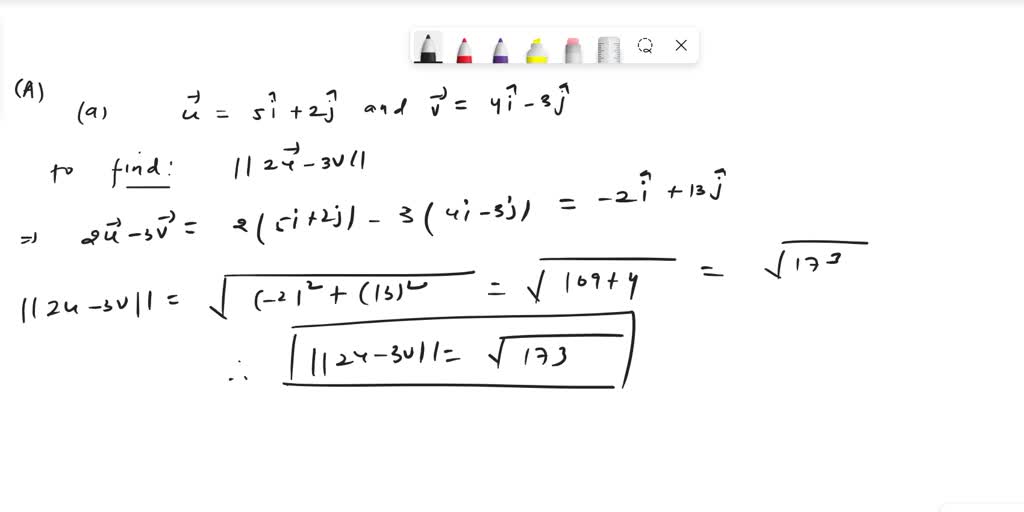 (A)
(a) u⃗ = 5î + 2ĵ and v⃗ = 4î - 3ĵ
to find: ||2u⃗ - 3v||
⇒ 2u⃗ - 3v⃗ = 2(5i + 2j) - 3(4i - 3j) = -2î + 13ĵ
||2u - 3v|| = √((-2)² + (13)²) = √(169 + 4) = √173
∴ ||2u - 3v|| = √173